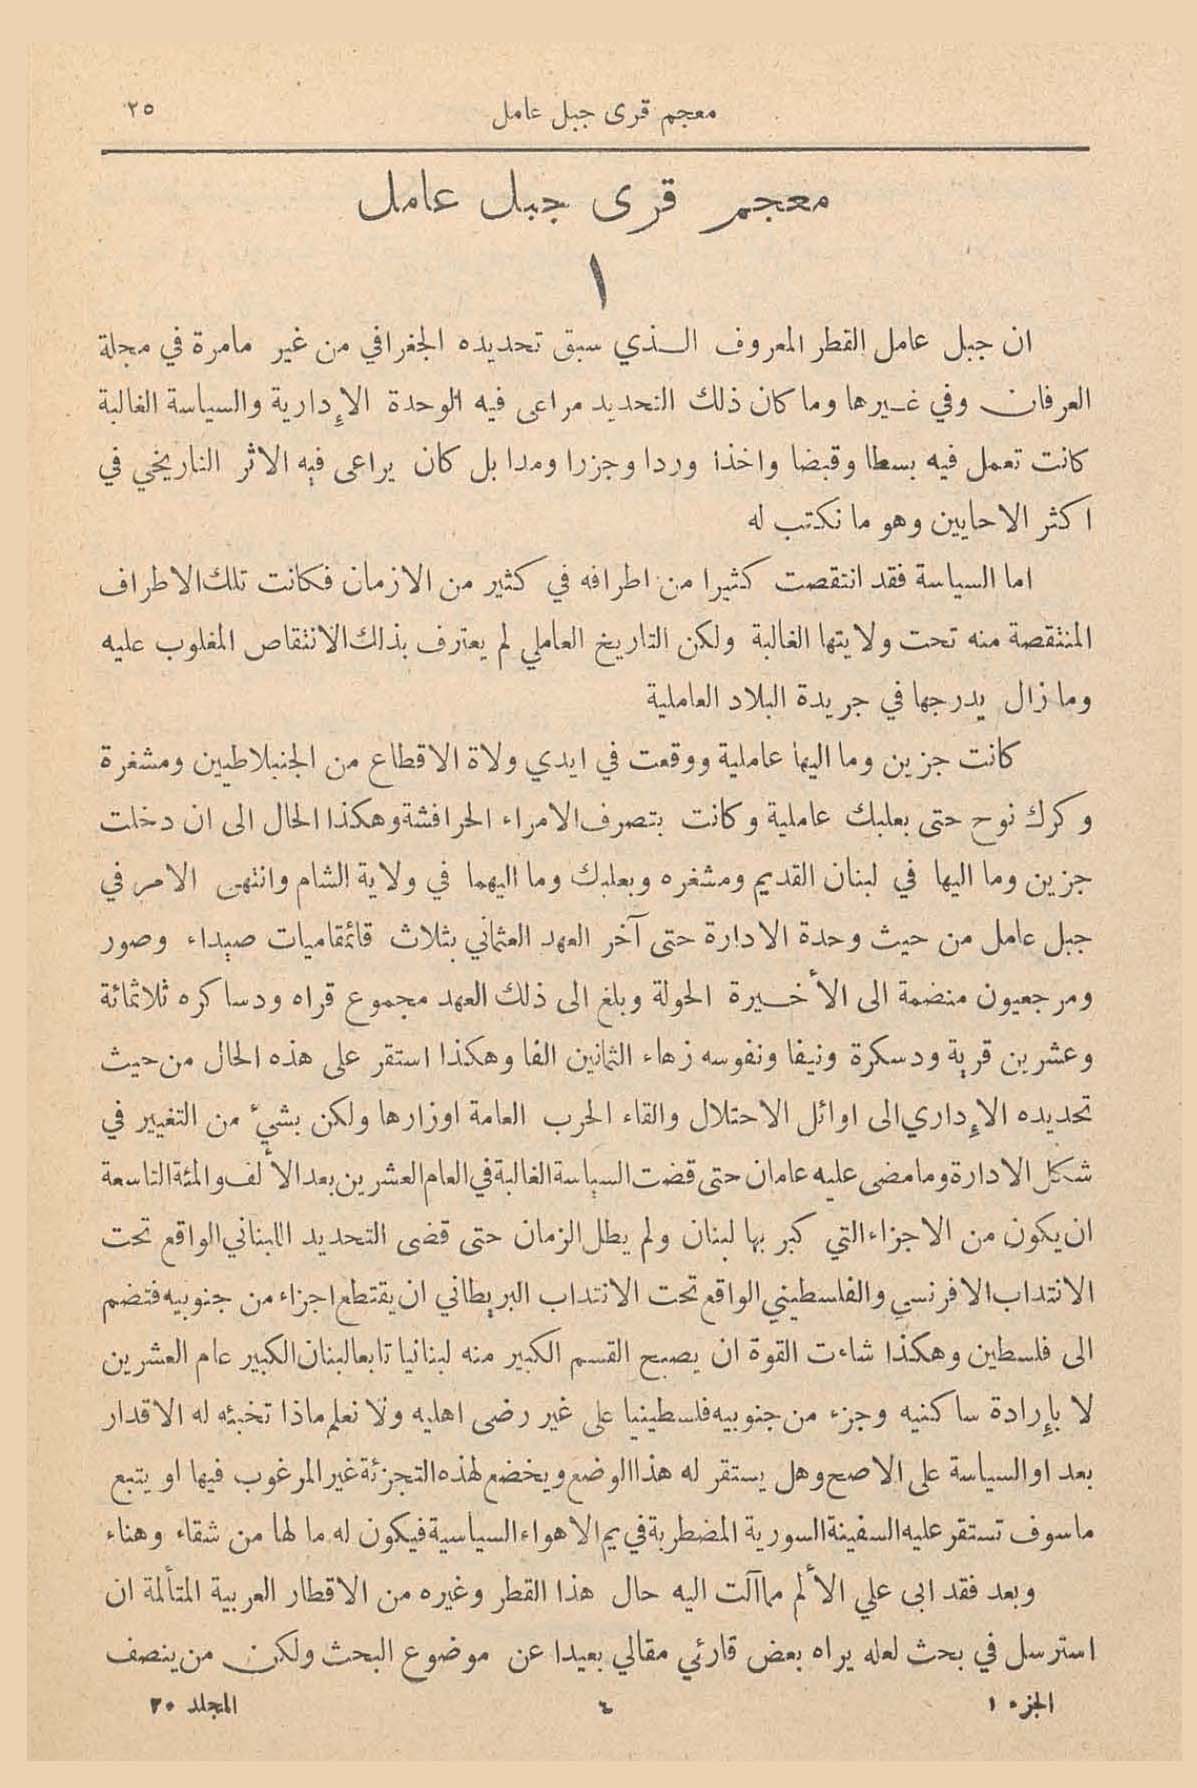 معجم قرى جبل عامل ٢٥
معجم قرى جبل عامل
١
ان جبل عامل القطر المعروف الـذي سبق تحديده الجغرافي من غير مامرة في مجلة
العرفان وفي غـيرها وما كان ذلك التحديد مراعى فيه الوحدة الإدارية والسياسة الغالبة
كانت تعمل فيه بسطا وقبضا واخذا وردا وجزرا ومدا بل كان يراعى فيه الاثر التاريخي في
اكثر الاحايين وهو ما نكتب له
اما السياسة فقد انتقصت كثيرا من اطرافه في كثير من الازمان فكانت تلك الاطراف
المنتقصة منه تحت ولايتها الغالبة ولكن التاريخ العاملي لم يعترف بذاك الانتقاص المغلوب عليه
وما زال يدرجها في جريدة البلاد العاملية
كانت جزين وما اليها عاملية ووقعت في ايدي ولاة الاقطاع من الجنبلاطيين ومشغرة
وكرك نوح حتى بعلبك عاملية وكانت بتصرف الامراء الحرافشة وهكذا الحال الى ان دخلت
جزين وما اليها في لبنان القديم ومشغره وبعلبك وما اليهما في ولاية الشام وانتهى الامر في
جبل عامل من حيث وحدة الادارة حتى آخر العهد العثماني بثلاث قائمقاميات صيداء وصور
ومرجعيون منضمة الى الأخـيرة الحولة وبلغ الى ذلك العهد مجموع قراه ودساكره ثلاثمائة
وعشرين قرية ودسكرة ونيفا ونفوسه زهاء الثمانين الفا وهكذا استقر على هذه الحال من حيث
تحديده الإداري الى اوائل الاحتلال والقاء الحرب العامة اوزارها ولكن بشيء من التغيير في
شكل الادارة وما مضى عليه عامان حتى قضت السياسة الغالبة في العام العشرين بعد الألف والمئة التاسعة
ان يكون من الاجزاء التي كبر بها لبنان ولم يطل الزمان حتى قضى التحديد اللبناني الواقع تحت
الانتداب الافرنسي والفلسطيني الواقع تحت الانتداب البريطاني ان يقتطع اجزاء من جنوبيه فتضم
الى فلسطين وهكذا شاءت القوة ان يصبح القسم الكبير منه لبنانيا تابعا لبنان الكبير عام العشرين
لا بإرادة ساكنيه وجزء من جنوبيه فلسطينيا على غير رضى اهليه ولا نعلم ماذا تخبئه له الاقدار
بعد او السياسة على الاصح وهل يستقر له هذا الوضع ويخضع لهذه التجزئة غير المرغوب فيها او يتبع
ما سوف تستقر عليه السفينة السورية المضطربة في يم الاهواء السياسية فيكون له ما لها من شقاء وهناء
وبعد فقد ابى علي الألم مما آلت اليه حال هذا القطر وغيره من الاقطار العربية المتألمة ان
استرسل في بحث لعله يراه بعض قارئي مقالي بعيدا عن موضوع البحث ولكن من ينصف
الجزء ١ ٤ المجلد ٢٠